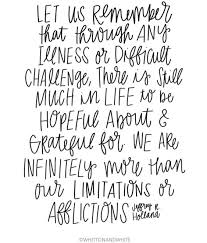 LET US REMEMBER
that through ANY
ILLNESS or DIFFICULT
CHALLENGE, THERE is STILL
MUCH in LIFE to be
HOPEFUL ABOUT &
GRATEFUL FOR WE ARE
INFINITELY more than
our LIMITATIONS or
AFFLICTIONS Jeffrey R. Holland
©WHITTONANDWHITE